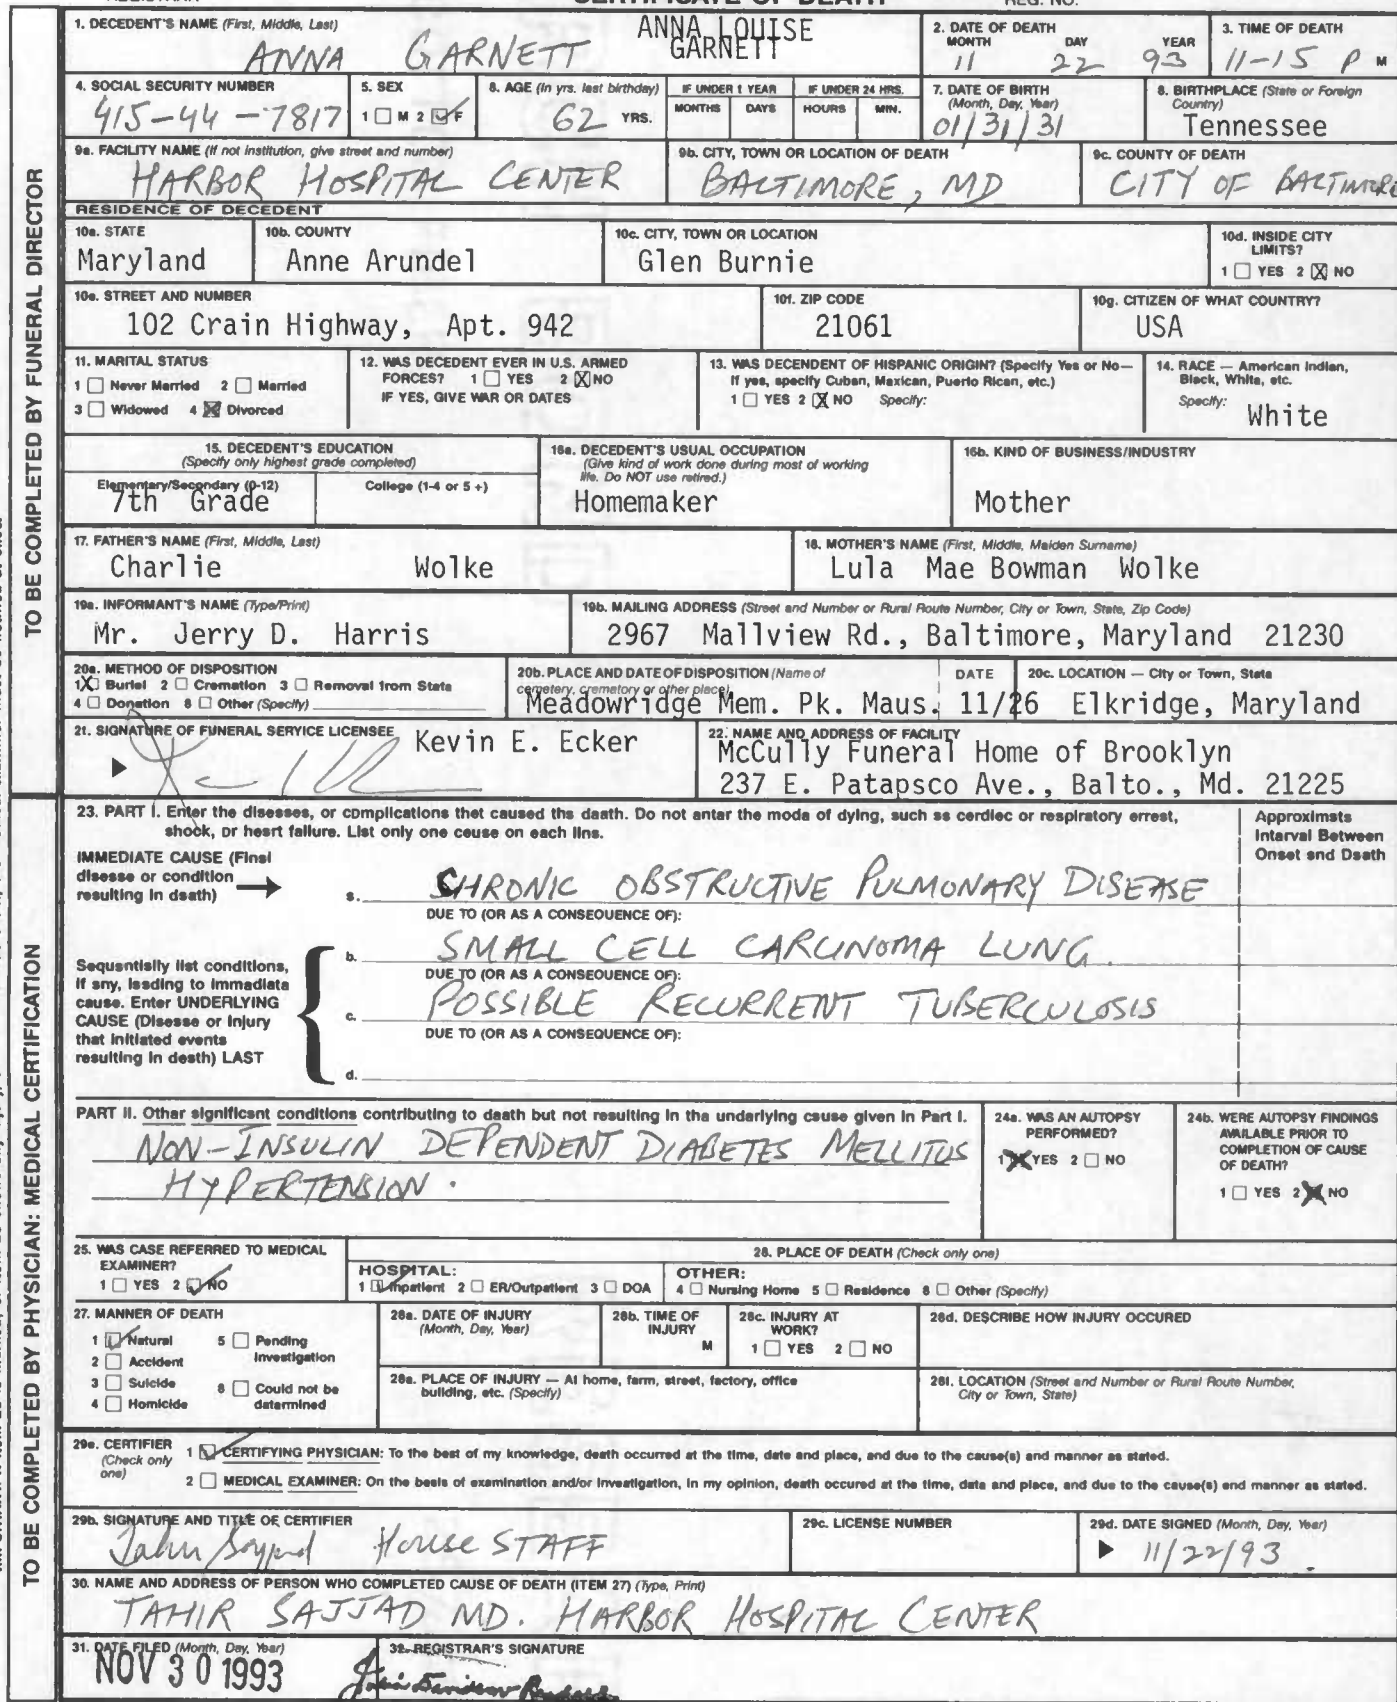 CERTIFICATE OF DEATH
REG. NO.
1. DECEDENT'S NAME (First, Middle, Last)
ANNA GARNETT
ANNA LOUISE
GARNETT
2. DATE OF DEATH
MONTH DAY YEAR
11 22 93
3. TIME OF DEATH
11-15 P M
4. SOCIAL SECURITY NUMBER
415-44-7817
5. SEX
1 M 2 F
6. AGE (In yrs. last birthday)
62 YRS.
IF UNDER 1 YEAR
MONTHS DAYS
IF UNDER 24 HRS.
HOURS MIN.
7. DATE OF BIRTH
(Month, Day, Year)
01/31/31
8. BIRTHPLACE (State or Foreign
Country)
Tennessee
9a. FACILITY NAME (If not institution, give street and number)
HARBOR HOSPITAL CENTER
9b. CITY, TOWN OR LOCATION OF DEATH
BALTIMORE, MD
9c. COUNTY OF DEATH
CITY OF BALTIMORE
RESIDENCE OF DECEDENT
10a. STATE
Maryland
10b. COUNTY
Anne Arundel
10c. CITY, TOWN OR LOCATION
Glen Burnie
10d. INSIDE CITY
LIMITS?
1 YES 2 X NO
10e. STREET AND NUMBER
102 Crain Highway, Apt. 942
10f. ZIP CODE
21061
10g. CITIZEN OF WHAT COUNTRY?
USA
11. MARITAL STATUS
1 Never Married 2 Married
3 Widowed 4 X Divorced
12. WAS DECEDENT EVER IN U.S. ARMED
FORCES? 1 YES 2 X NO
IF YES, GIVE WAR OR DATES
13. WAS DECENDENT OF HISPANIC ORIGIN? (Specify Yes or No—
If yes, specify Cuban, Mexican, Puerto Rican, etc.)
1 YES 2 X NO Specify:
14. RACE — American Indian,
Black, White, etc.
Specify:
White
15. DECEDENT'S EDUCATION
(Specify only highest grade completed)
Elementary/Secondary (0-12) College (1-4 or 5 +)
7th Grade
16a. DECEDENT'S USUAL OCCUPATION
(Give kind of work done during most of working
life. Do NOT use retired.)
Homemaker
16b. KIND OF BUSINESS/INDUSTRY
Mother
17. FATHER'S NAME (First, Middle, Last)
Charlie Wolke
18. MOTHER'S NAME (First, Middle, Maiden Surname)
Lula Mae Bowman Wolke
19a. INFORMANT'S NAME (Type/Print)
Mr. Jerry D. Harris
19b. MAILING ADDRESS (Street and Number or Rural Route Number, City or Town, State, Zip Code)
2967 Mallview Rd., Baltimore, Maryland 21230
20a. METHOD OF DISPOSITION
1 X Burial 2 Cremation 3 Removal from State
4 Donation 8 Other (Specify)
20b. PLACE AND DATE OF DISPOSITION (Name of
cemetery, crematory or other place)
Meadowridge Mem. Pk. Maus.
DATE
11/26
20c. LOCATION — City or Town, State
Elkridge, Maryland
21. SIGNATURE OF FUNERAL SERVICE LICENSEE
Kevin E. Ecker
22. NAME AND ADDRESS OF FACILITY
McCully Funeral Home of Brooklyn
237 E. Patapsco Ave., Balto., Md. 21225
TO BE COMPLETED BY FUNERAL DIRECTOR
23. PART I. Enter the diseases, or complications that caused the death. Do not enter the mode of dying, such as cardiac or respiratory arrest,
shock, or heart failure. List only one cause on each line.
Approximate
Interval Between
Onset and Death
IMMEDIATE CAUSE (Final
disease or condition
resulting in death)
a. CHRONIC OBSTRUCTIVE PULMONARY DISEASE
DUE TO (OR AS A CONSEQUENCE OF):
b. SMALL CELL CARCINOMA LUNG.
DUE TO (OR AS A CONSEQUENCE OF):
c. POSSIBLE RECURRENT TUBERCULOSIS
DUE TO (OR AS A CONSEQUENCE OF):
d.
Sequentially list conditions,
if any, leading to immediate
cause. Enter UNDERLYING
CAUSE (Disease or injury
that initiated events
resulting in death) LAST
PART II. Other significant conditions contributing to death but not resulting in the underlying cause given in Part I.
NON-INSULIN DEPENDENT DIABETES MELLITUS
HYPERTENSION.
24a. WAS AN AUTOPSY
PERFORMED?
1 X YES 2 NO
24b. WERE AUTOPSY FINDINGS
AVAILABLE PRIOR TO
COMPLETION OF CAUSE
OF DEATH?
1 YES 2 X NO
25. WAS CASE REFERRED TO MEDICAL
EXAMINER?
1 YES 2 NO
26. PLACE OF DEATH (Check only one)
HOSPITAL:
1 Inpatient 2 ER/Outpatient 3 DOA
OTHER:
4 Nursing Home 5 Residence 8 Other (Specify)
27. MANNER OF DEATH
1 Natural 5 Pending
Investigation
2 Accident
3 Suicide 8 Could not be
determined
4 Homicide
28a. DATE OF INJURY
(Month, Day, Year)
28b. TIME OF
INJURY
M
28c. INJURY AT
WORK?
1 YES 2 NO
28d. DESCRIBE HOW INJURY OCCURED
28e. PLACE OF INJURY — At home, farm, street, factory, office
building, etc. (Specify)
28f. LOCATION (Street and Number or Rural Route Number,
City or Town, State)
29a. CERTIFIER
(Check only
one)
1 CERTIFYING PHYSICIAN: To the best of my knowledge, death occurred at the time, date and place, and due to the cause(s) and manner as stated.
2 MEDICAL EXAMINER: On the basis of examination and/or investigation, in my opinion, death occured at the time, date and place, and due to the cause(s) and manner as stated.
29b. SIGNATURE AND TITLE OF CERTIFIER
House STAFF
29c. LICENSE NUMBER
29d. DATE SIGNED (Month, Day, Year)
11/22/93.
30. NAME AND ADDRESS OF PERSON WHO COMPLETED CAUSE OF DEATH (ITEM 27) (Type, Print)
TAHIR SAJJAD MD. HARBOR HOSPITAL CENTER
31. DATE FILED (Month, Day, Year)
NOV 30 1993
32. REGISTRAR'S SIGNATURE
TO BE COMPLETED BY PHYSICIAN: MEDICAL CERTIFICATION